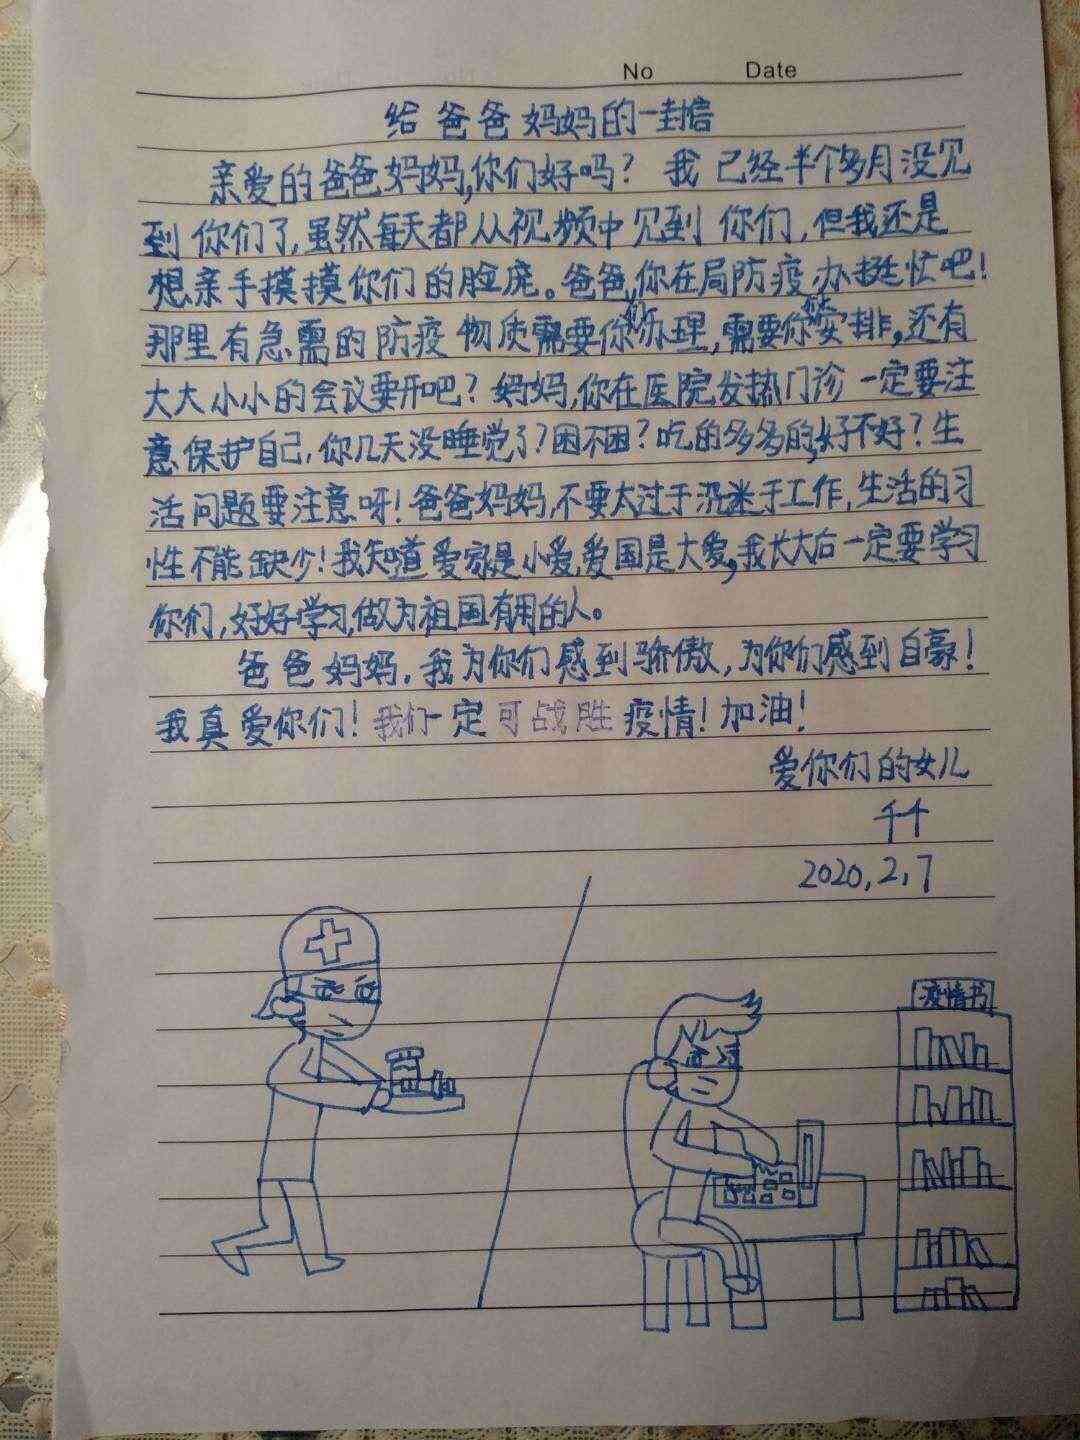 No Date
给爸爸妈妈的一封信
亲爱的爸爸妈妈,你们好吗？我已经半个多月没见
到你们了,虽然每天都从视频中见到你们,但我还是
想亲手摸摸你们的脸庞。爸爸,你在局防疫办挺忙吧！
那里有急需的防疫物质需要你去办理,需要你去安排,还有
大大小小的会议要开吧？妈妈,你在医院发热门诊一定要注
意保护自己,你几天没睡觉了？困不困？吃的多多的,好不好？生
活问题要注意呀！爸爸妈妈,不要太过于沉迷于工作,生活的习
性不能缺少！我知道爱家是小爱,爱国是大爱,我长大后一定要学习
你们,好好学习,做为祖国有用的人。
爸爸妈妈,我为你们感到骄傲,为你们感到自豪！
我真爱你们！我们一定可战胜疫情！加油！
爱你们的女儿
千千
2020,2,7
疫情书